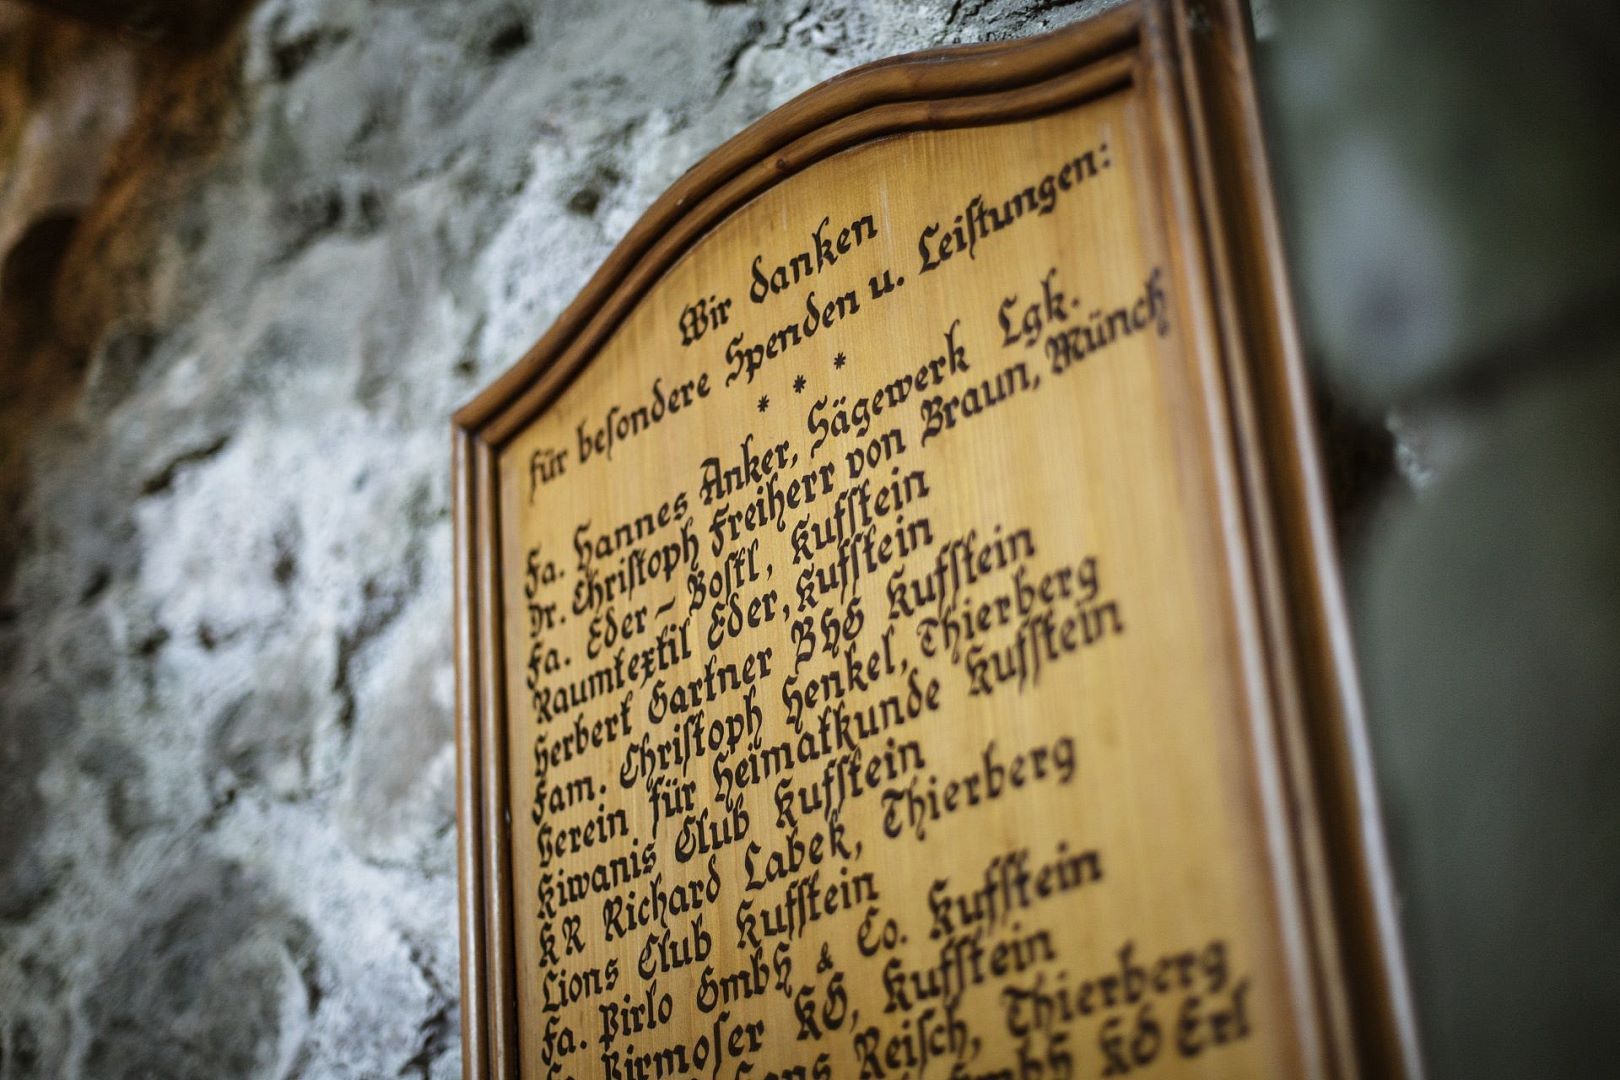 Wir danken
für besondere Spenden u. Leistungen:
* * *
Fa. Hannes Anker, Sägewerk Lgk.
Dr. Christoph Freiherr von Braun, Münch
Fa. Eder - Bostl, Kufstein
Raumtextil Eder, Kufstein
Herbert Gartner BHG Kufstein
Fam. Christoph Henkel, Thierberg
Verein für Heimatkunde Kufstein
Kiwanis Club Kufstein
KR Richard Labek, Thierberg
Lions Club Kufstein
Fa. Pirlo GmbH & Co. Kufstein
Pirmoser KG, Kufstein
Reisch, Thierberg
GmbH KG Erl